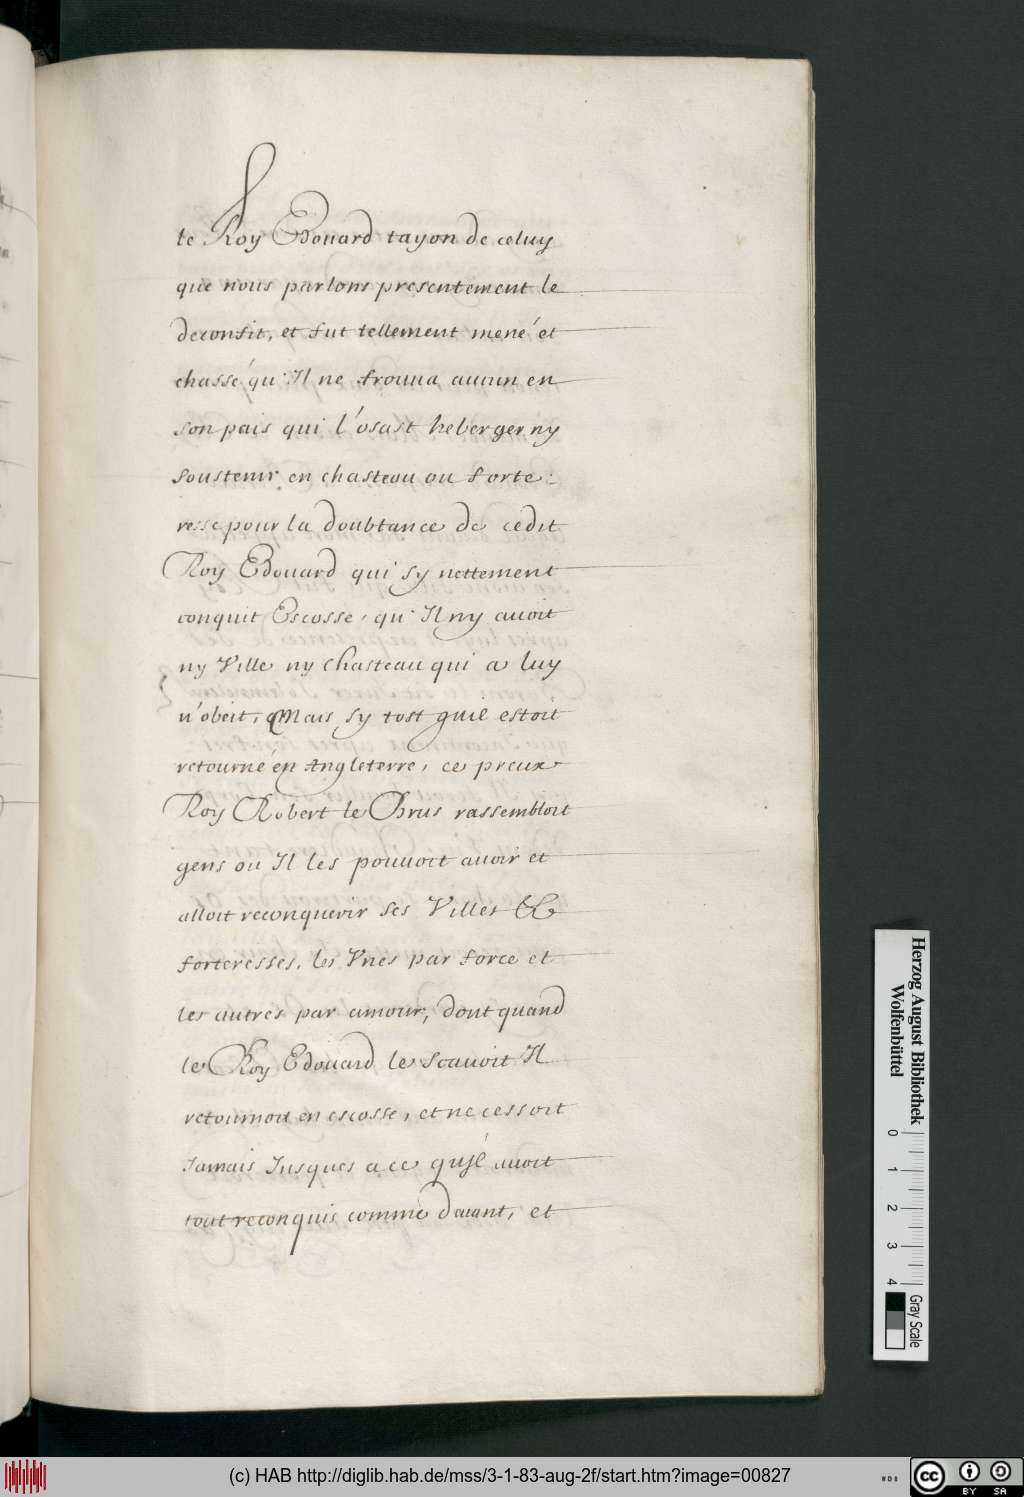 le Roy Edouard tayon de celuy
que nous parlons presentement le
deconfit, et fut tellement mené et
chassé qu'Il ne trouua aucun en
son pais qui l'osast heberger ny
soustenir en chasteau ou forte:
resse pour la doubtance de cedit
Roy Edouard qui sy nettement
conquit Escosse, qu'Il ny auoit
ny Ville ny Chasteau qui a luy
n'obeit, Mais sy tost quil estoit
retourné en Angleterre, ce preux
Roy Robert le Brus rassembloit
gens ou Il les pouuoit auoir et
alloit reconquerir ses Villes &
forteresses, les Vnes par force et
les autres par amour, dont quand
le Roy Edouard le scauoit Il
retournoit en escosse, et ne cessoit
Jamais Jusques a ce qu'Jl auoit
tout reconquis comme dauant, et
Herzog August Bibliothek
Wolfenbüttel
0 1 2 3 4
Gray Scale
(c) HAB http://diglib.hab.de/mss/3-1-83-aug-2f/start.htm?image=00827
WDB
cc BY SA